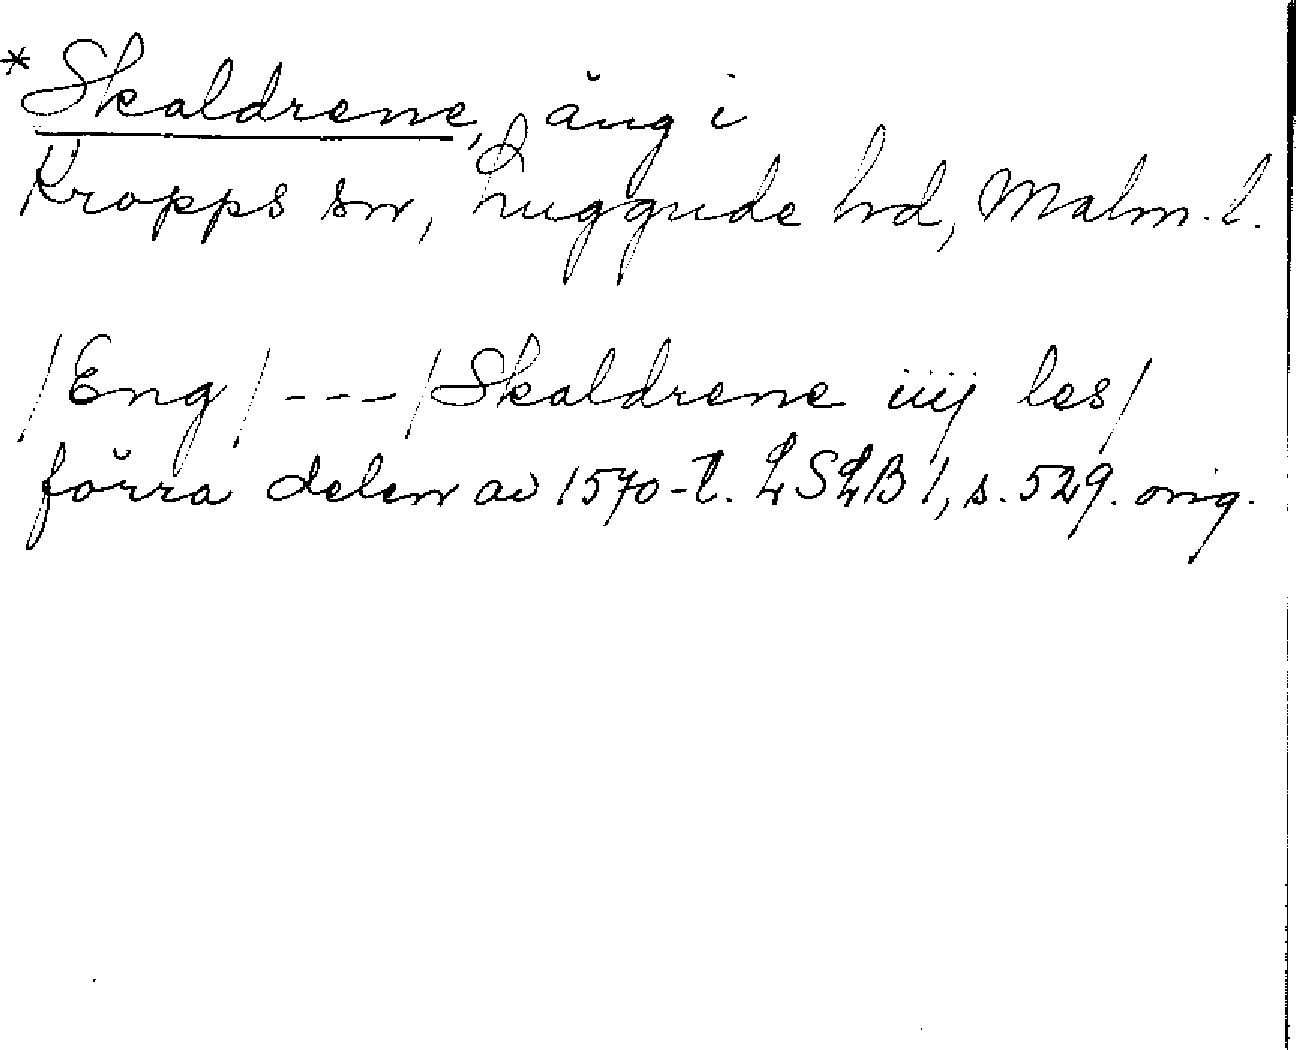 *Skaldrene, äng i
Kropps sn, Luggude hd, Malm. l.
/Eng/ - - - /Skaldrene iiij les/
förra delen av 1570-t. LSLB 1, s. 529. orig.